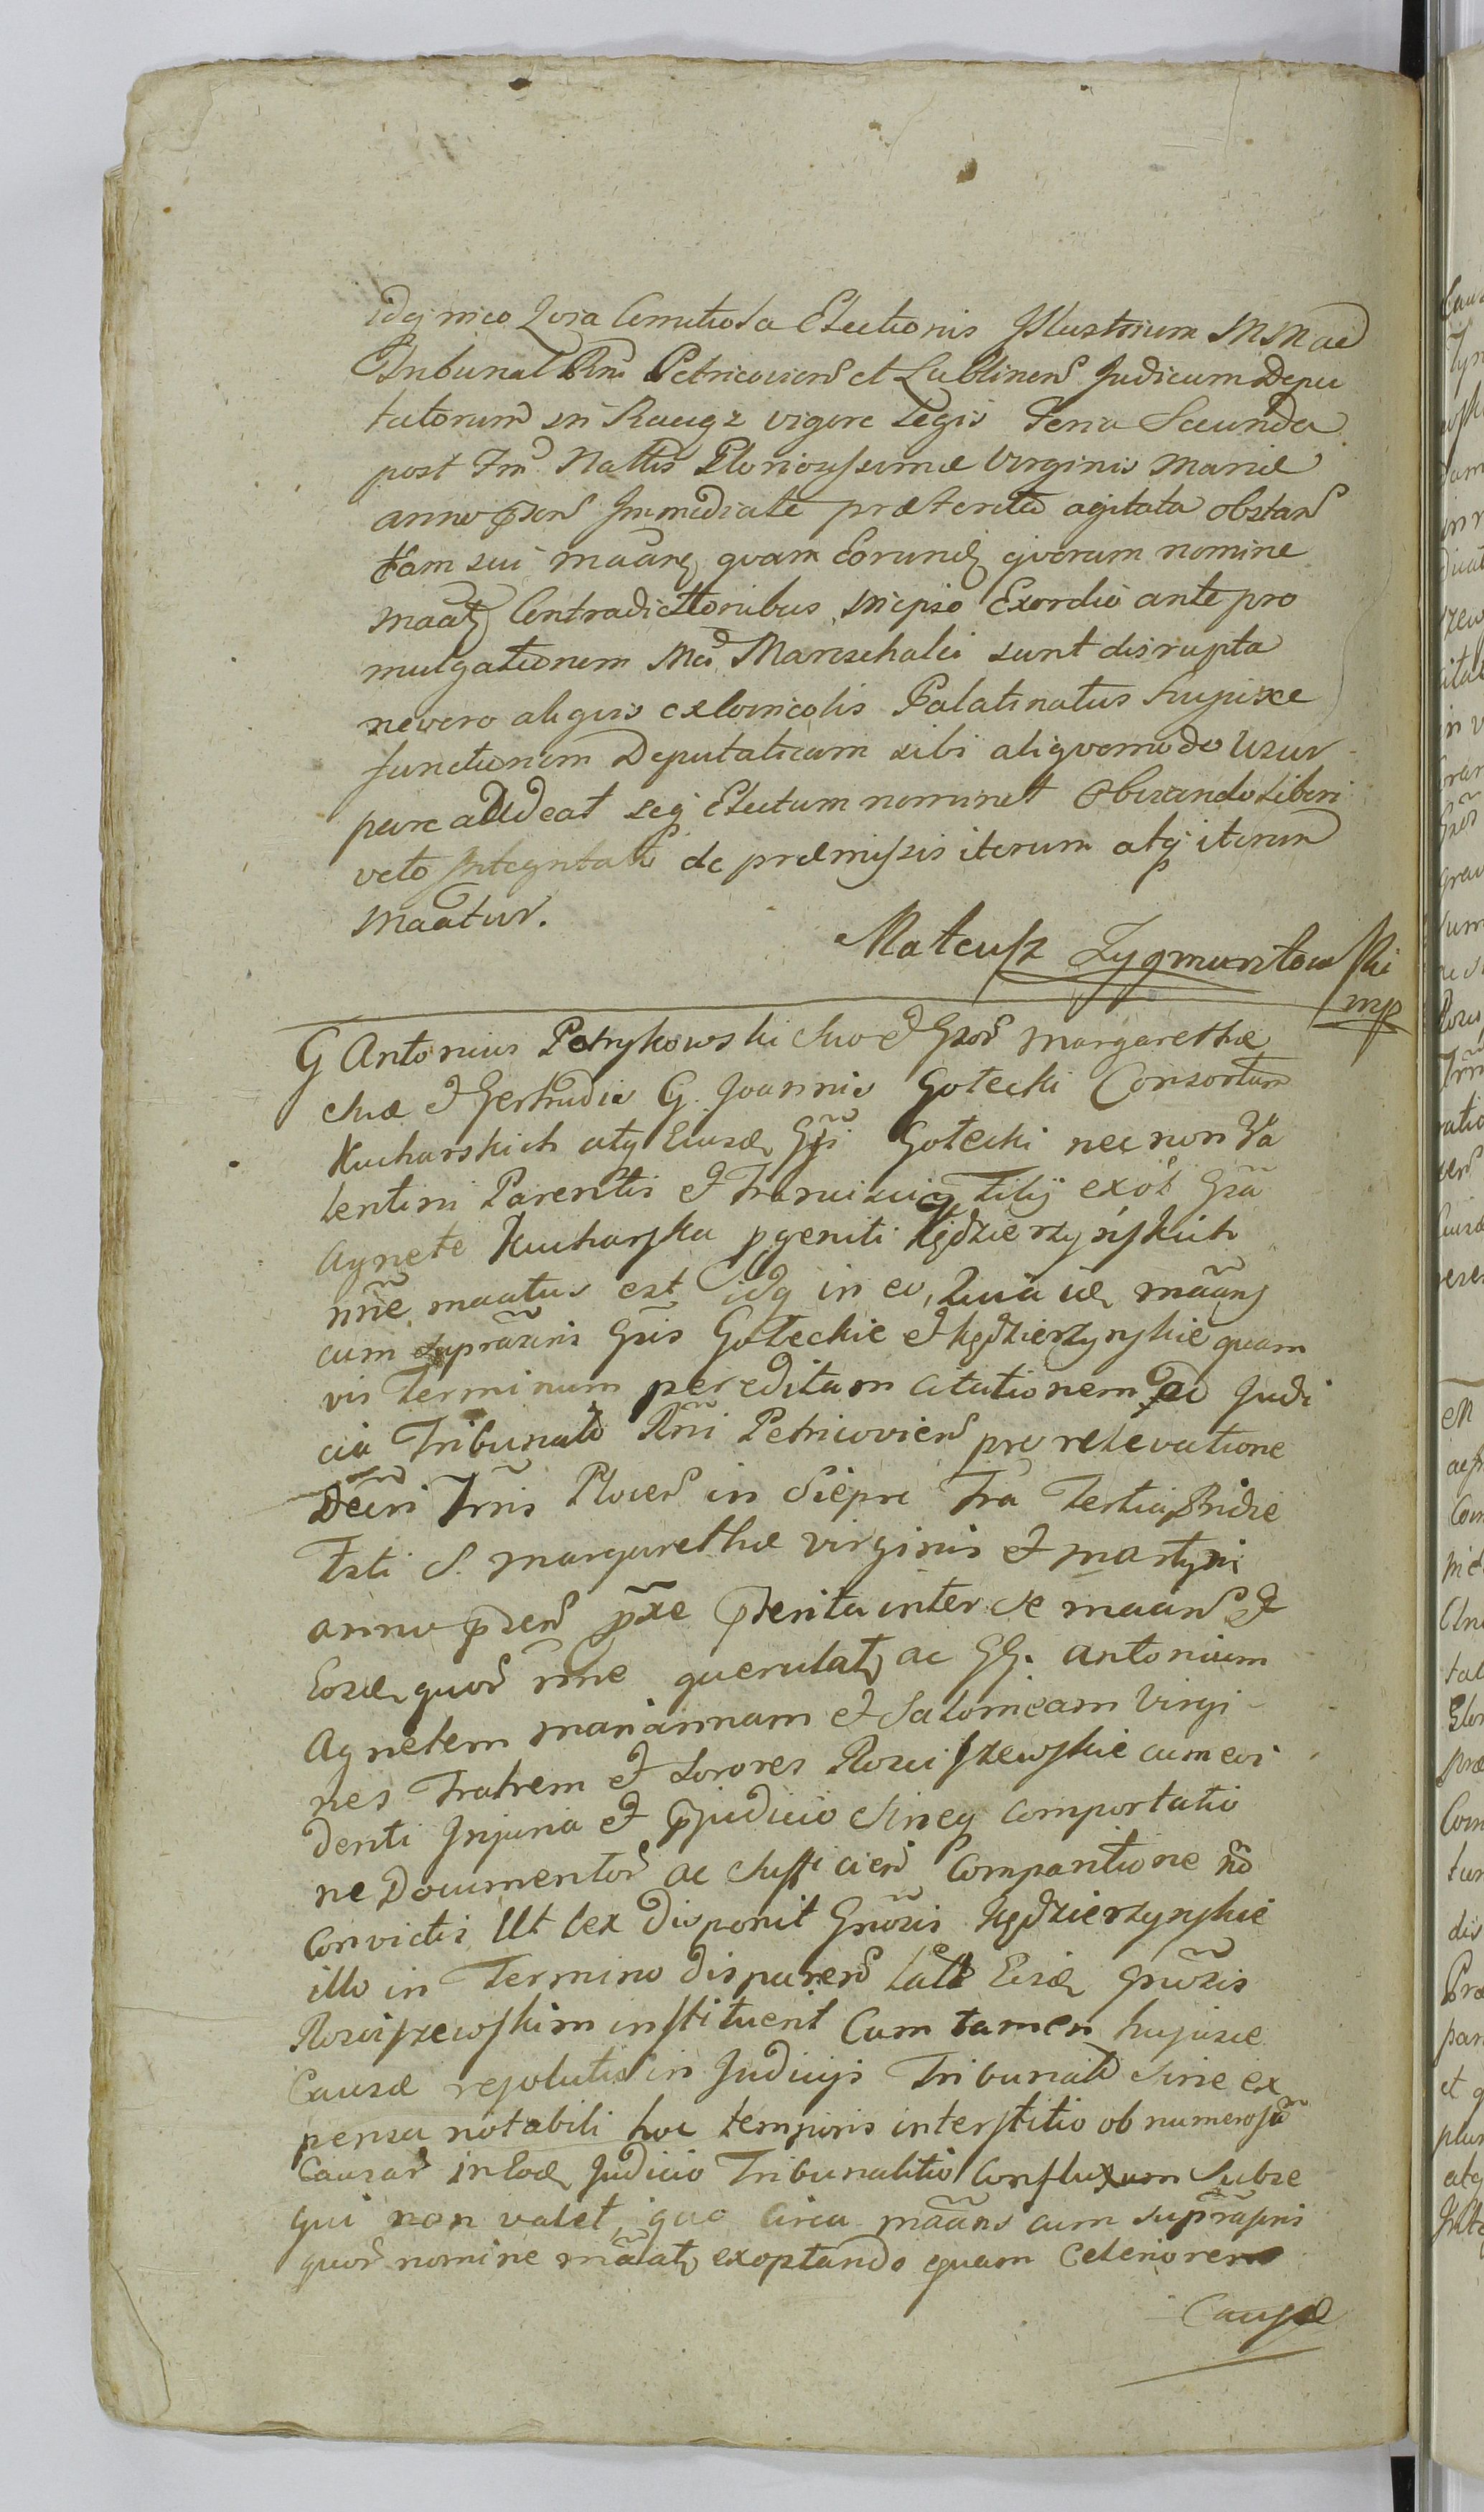 Idq in eo Quia Comitiola Electionis Illustrium MM ad
Tribunal Rni Petricovien et Lublinen Judicum Depu
tatorum in Raciąz vigore Legis Feria Secunda
post Fm Nattis Gloriosissimæ Virginis Mariæ
anno præsen Immediate præterita agitata obstan
tam sui maanq quam Eorund quorum nomine
maat Contradictionibus in ipso Exordio ante pro
mulgationem Mci Marschalci sunt disrupta
ne vero aliquis exloincolis Palatinatus hujusce
functionem Deputaticam sibi aliquomodo Usur
pare audeat seq Electum nominet Obviando Liberi
veto Integritati de præmissis iterum atq iterum
maatur.
Mateusz Zygmuntowski
mp
G Antonius Petrykowski Suo et Gsor Margarethæ
Suæ et Gertrudis G. Joannis Gołecki Consortum
Kucharskich atq Eiusd Gsi Gołecki nec non Va
lentini Parentis et Francisciq Filij exol Gsa
Agnete Kucharska pgeniti Kędzierzyńskich
nne maatus est idq in eo, Quia id maans
cum supraxtis Gsis Gołeckie et Kędzierzynskie quam
vis Terminum per editam Citationem ad Judi
cia Tribunals Rni Petricovien pro relevatione
Decri Trris Plocen in Sieprc Fra Tertia Pridie
Fsti S. Margarethæ Virginis et Martyris
anno præsen pxe præterita inter se maan et
Eosd quor nne querulat ac GG. Antonium
Agnetem Mariannam et Salomeam Virgi-
nes Fratrem et Sorores Rosciszewskie cum evi
denti Injuria et præjudicio Sineq Comportatio
ne Documentor ac Sufficien Comparitione no
Convictis Ut lex disponit Gnosis Kędzierzynskie
illo in Termino disparen lati Eisd Gnosis
Rosciszewskim instituerit Cum tamen hujusce
Causæ resolutis in Judicijs Tribunals Sine ex
pensa notabili hoc temporis interstitio ob numerosu
Causar in Eod Judicio Tribunalitio Confluxum Subse
qui non valet, quo circa maans cum suprasris
quor nomine maat exoptando quam Celeriorem
Causæ